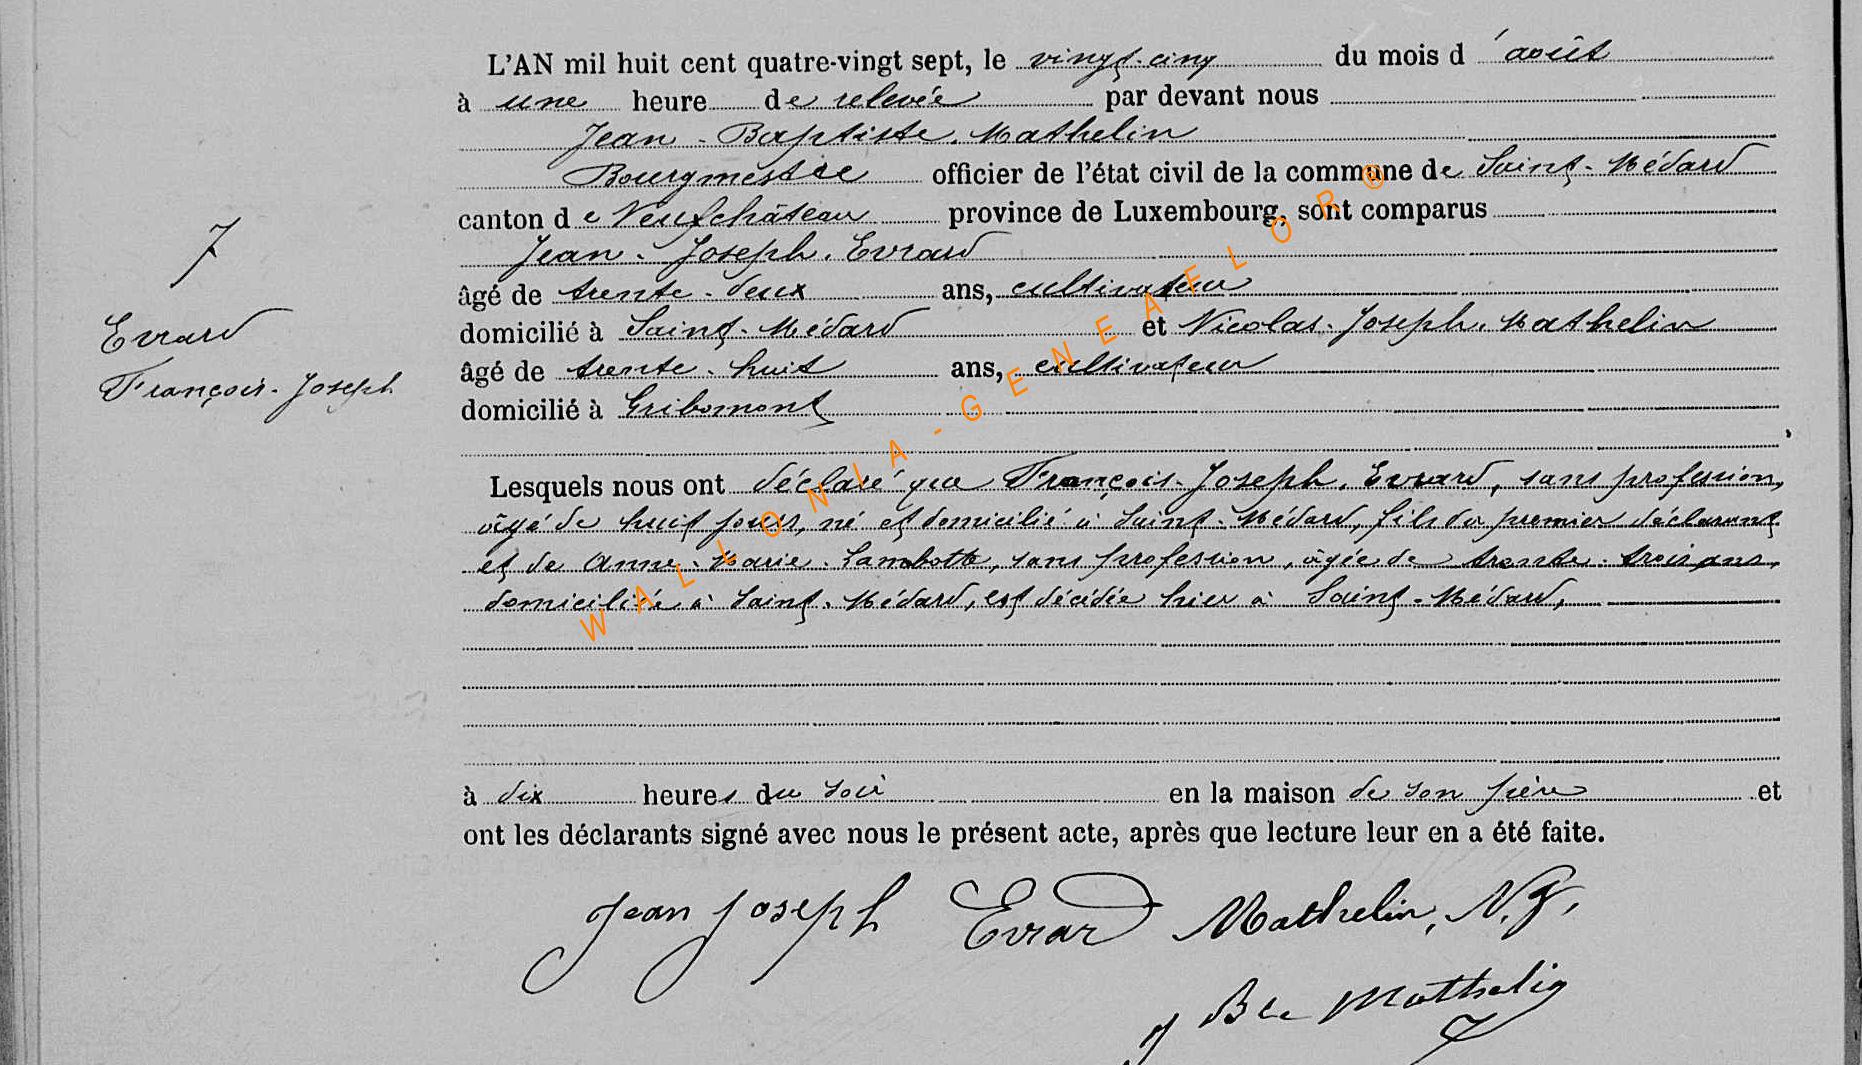 L'AN mil huit cent quatre-vingt sept, le vingt-cinq du mois d'août
à une heure de relevée par devant nous
Jean-Baptiste Mathelin
Bourgmestre officier de l'état civil de la commune de Saint-Médard
canton de Neufchâteau province de Luxembourg, sont comparus
Jean-Joseph Evrard
âgé de trente-deux ans, cultivateur
domicilié à Saint-Médard et Nicolas-Joseph Mathelin
âgé de trente-huit ans, cultivateur
domicilié à Gribomont
7
Evrard
François-Joseph
Lesquels nous ont déclaré que François-Joseph Evrard, sans profession,
âgé de huit jours, né et domicilié à Saint-Médard, fils du premier déclarant
et de Anne-Marie Lambotte, sans profession, âgée de trente-trois ans,
domiciliée à Saint-Médard, est décédée hier à Saint-Médard,
à dix heures du soir en la maison de son père et
ont les déclarants signé avec nous le présent acte, après que lecture leur en a été faite.
Jean Joseph Evrard Mathelin, N.J.
J Bte Mathelin
WALLONIA-GENEAFLOR ®